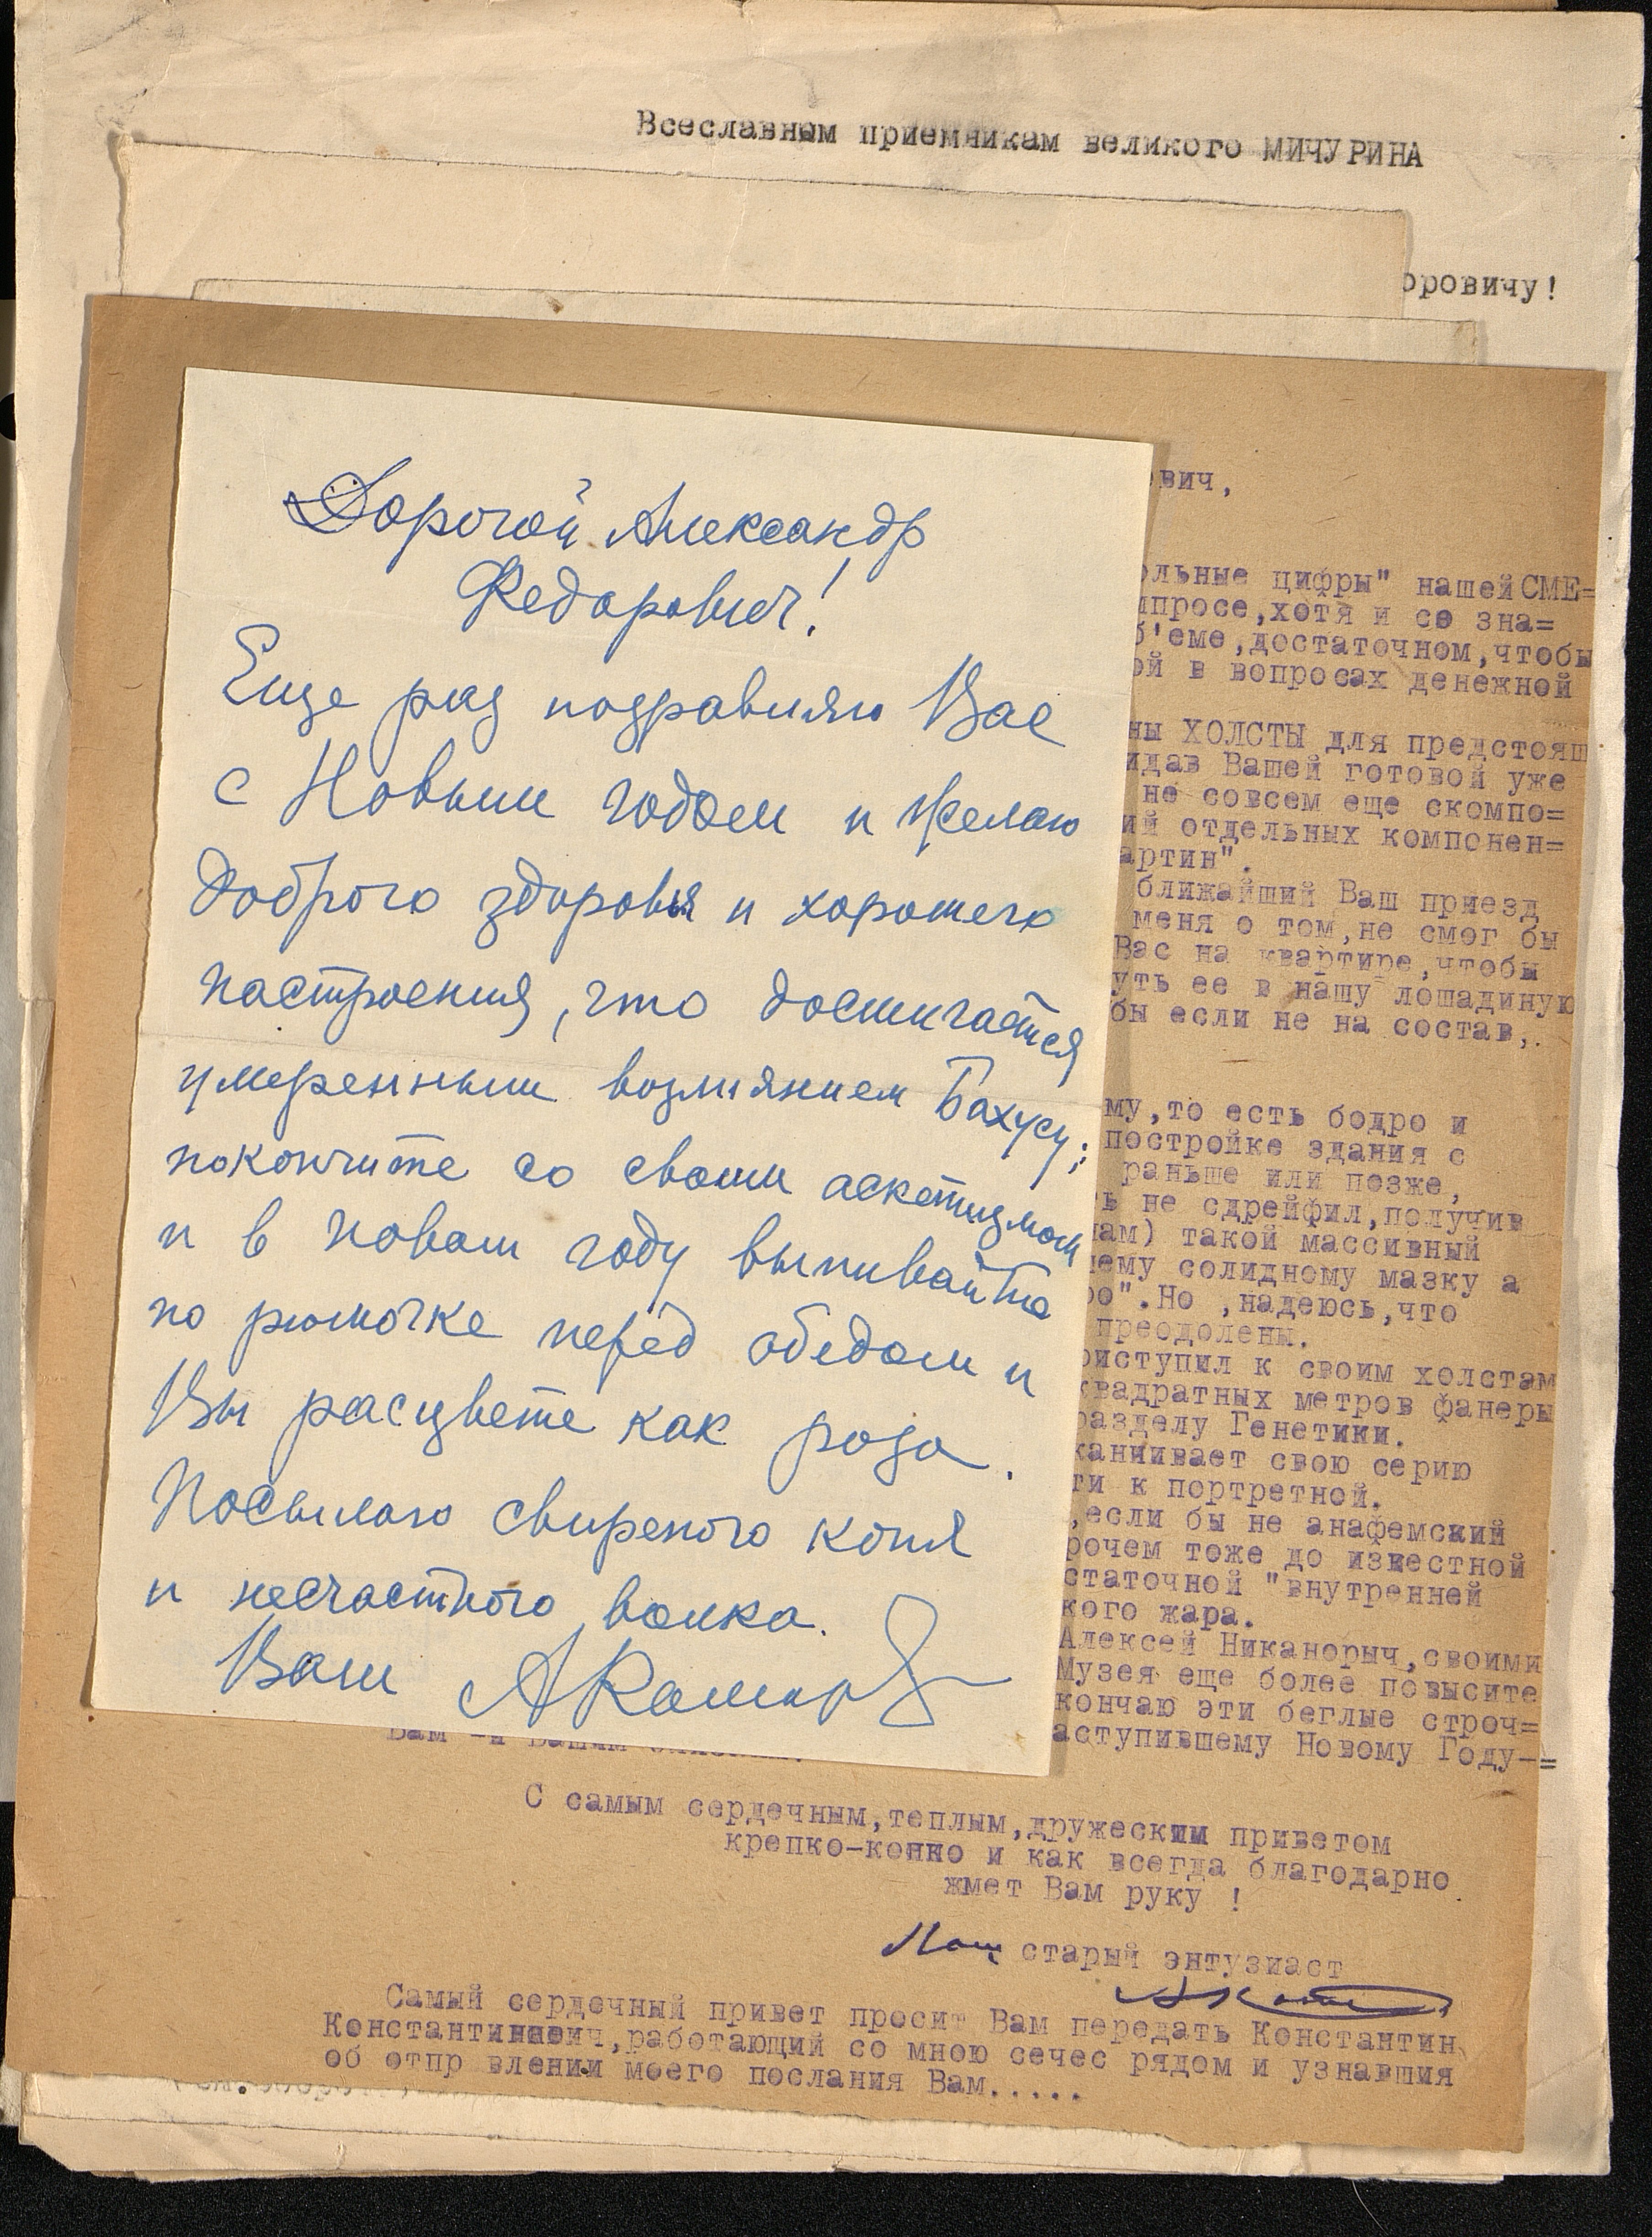 Всеславным приемникам великого МИЧУРИНА
оровичу!
Дорогой Александр
Федорович!
Еще раз поздравляю Вас
с Новым годом и желаю
доброго здоровья и хорошего
настроения, что достигается
умеренным возлиянием Бахусу;
покончите со своим аскетизмом
и в новом году выпивайте
по рюмочке перед обедом и
Вы расцвете как роза.
Посылаю свирепого коня
и несчастного волка.
Ваш АКомаров
вич,
ольные цифры" нашей СМЕ=
просе,хотя и со зна=
б'еме,достаточном,чтобы
ой в вопросах денежной
ны ХОЛСТЫ для предстоящ
идав Вашей готовой уже
не совсем еще скомпо=
ий отдельных компонен=
артин".
ближайший Ваш приезд
меня о том,не смог бы
Вас на квартире,чтобы
уть ее в нашу лошадиную
бы если не на состав,.
му,то есть бодро и
постройке здания с
раньше или позже,
ь не сдрейфил,получив
ам) такой массивный
ему солидному мазку а
ро".Но ,надеюсь,что
преодолены.
риступил к своим холстам
квадратных метров фанеры
разделу Генетики.
канчивает свою серию
ти к портретной.
,если бы не анафемский
рочем тоже до известной
статочной "внутренней
кого жара.
Алексей Никанорыч,своими
Музея еще более повысите
кончаю эти беглые строч=
аступившему Новому Году-=
Вам -и Вашим
С самым сердечным,теплым,дружеским приветом
крепко-конно и как всегда благодарно
жмет Вам руку !
Ваш старый энтузиаст
Самый сердечный привет просит Вам передать Константин
Константинович,работающий со мною сечес рядом и узнавшия
об отпр влении моего послания Вам.....